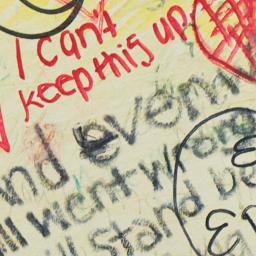 I can't
keep this up
and even
all went wrong
ill stand be